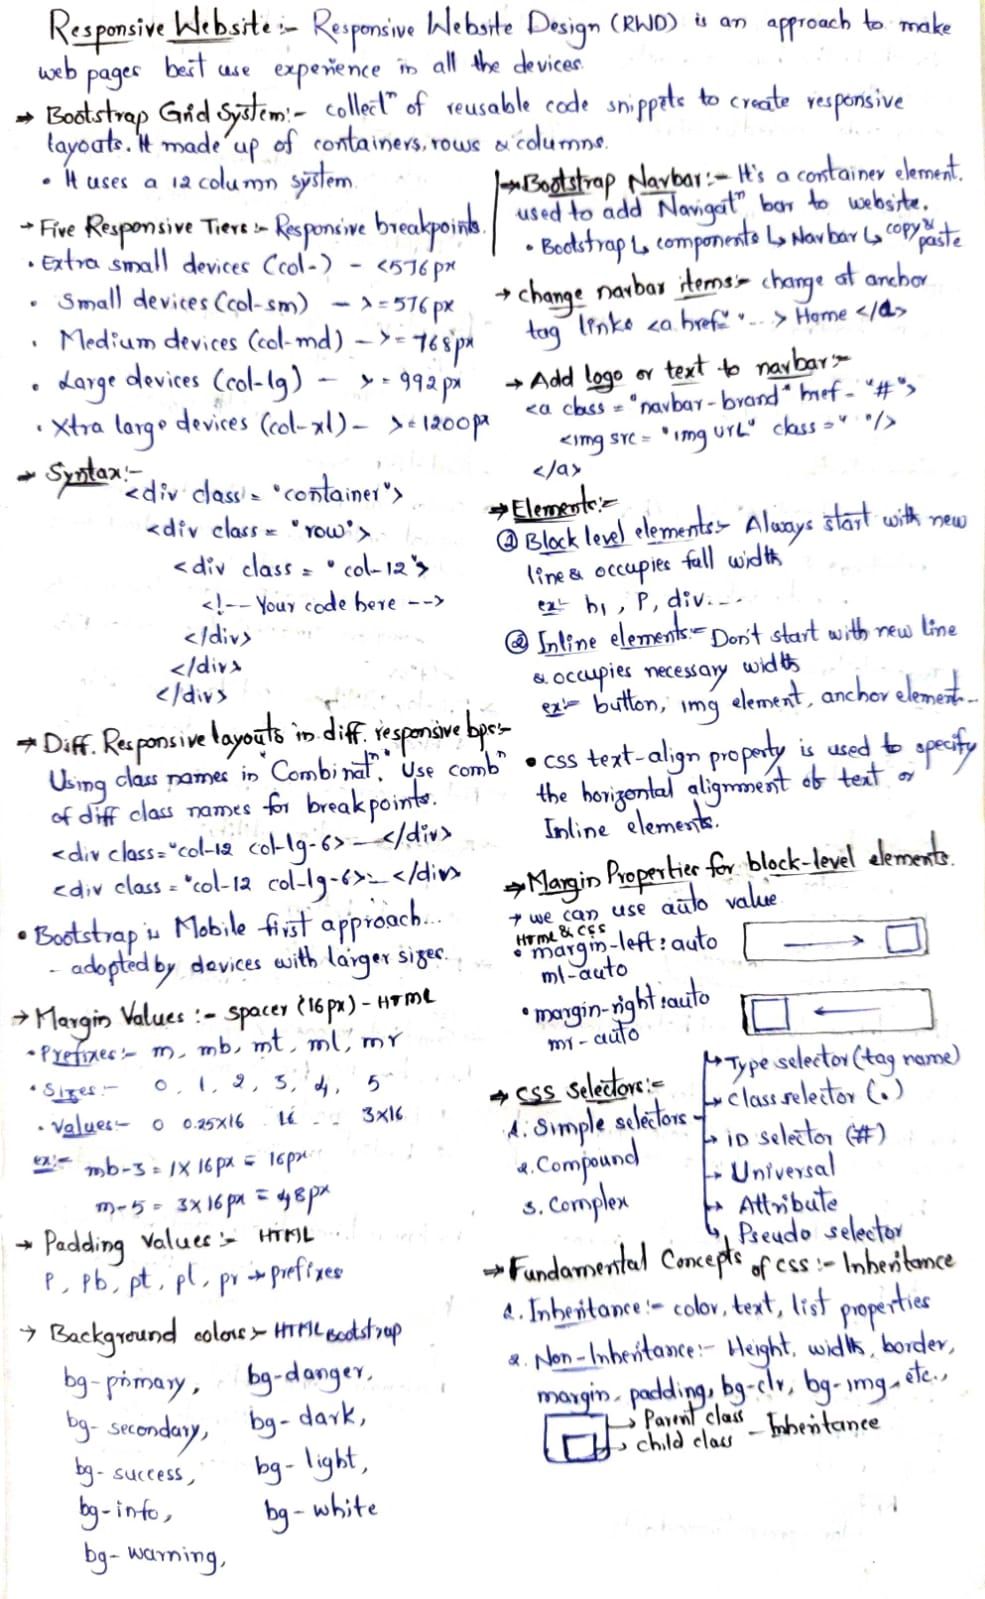 Responsive Website :- Responsive Website Design (RWD) is an approach to make
web pages best use experience in all the devices.
→ Bootstrap Grid System:- collectⁿ of reusable code snippets to create responsive
layouts. It made up of containers, rows & columns.
• It uses a 12 column system.
→ Five Responsive Tiers :- Responsive breakpoints.
• Extra small devices (col-) - <576px
• Small devices (col-sm) - >=576px
• Medium devices (col-md) - >=768px
• Large devices (col-lg) - >=992px
• Xtra large devices (col-xl) - >=1200px
→ Syntax:-
<div class = "container">
<div class = "row">
<div class = "col-12">
<!-- Your code here -->
</div>
</div>
</div>
→ Diff. Responsive layouts in diff. responsive bps:-
Using class names in "Combinatⁿ". Use combⁿ
of diff class names for breakpoints.
<div class="col-12 col-lg-6> — </div>
<div class = "col-12 col-lg-6> — </div>
• Bootstrap is Mobile first approach...
- adopted by devices with larger sizes.
→ Margin Values :- spacer (16px) - HTML
• Prefixes :- m, mb, mt, ml, mr
• Sizes :- 0, 1, 2, 3, 4, 5
• Values:- 0 0.25x16 16 - - 3x16
ex:- mb-3 = 1x16px = 16px
m-5 = 3x16px = 48px
→ Padding Values :- HTML
P, Pb, pt, pl, pr → prefixes
→ Background colors :- HTML Bootstrap
bg-primary, bg-danger,
bg-secondary, bg-dark,
bg-success, bg-light,
bg-info, bg-white
bg-warning,
→ Bootstrap Navbar :- It's a container element.
used to add Navigatⁿ bar to website.
• Bootstrap ↳ components ↳ Navbar ↳ copy & paste
→ change navbar items:- change at anchor
tag links <a href=" "... > Home </a>
→ Add logo or text to navbar :-
<a class = "navbar-brand" href = "#">
<img src = "img URL" class = " "/>
</a>
→ Elements:-
① Block level elements:- Always start with new
line & occupies full width
ex:- h1, P, div....
② Inline elements:- Don't start with new line
& occupies necessary width
ex:- button, img element, anchor element...
• CSS text-align property is used to specify
the horizontal alignment of text or
Inline elements.
→ Margin Properties for block-level elements.
→ we can use auto value.
HTML & CSS
• margin-left : auto
ml-auto
• margin-right : auto
mr-auto
→ CSS Selectors:-
1. Simple selectors
2. Compound
3. Complex
→ Type selector (tag name)
→ class selector (.)
→ iD selector (#)
→ Universal
→ Attribute
↳ Pseudo selector
→ Fundamental Concepts of CSS :- Inheritance
1. Inheritance:- color, text, list properties
2. Non-Inheritance:- Height, width, border,
margin, padding, bg-clr, bg-img, etc.,
→ Parent class
→ child class - Inheritance